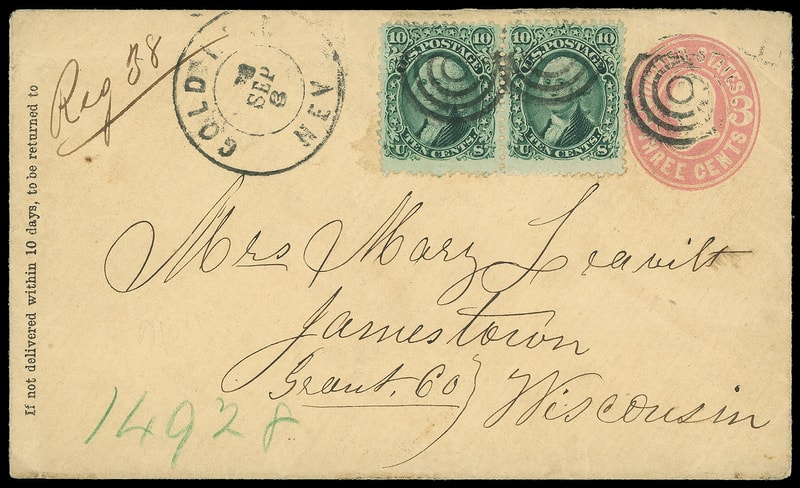 Reg 38
GOLD NEV
SEP
8
10 10
U.S. POSTAGE
TEN CENTS
U S
10 10
U.S. POSTAGE
TEN CENTS
U S
3
THREE CENTS
If not delivered within 10 days, to be returned to
Mrs Mary Leavitt
Jamestown
Grant. Co } Wisconsin
14928